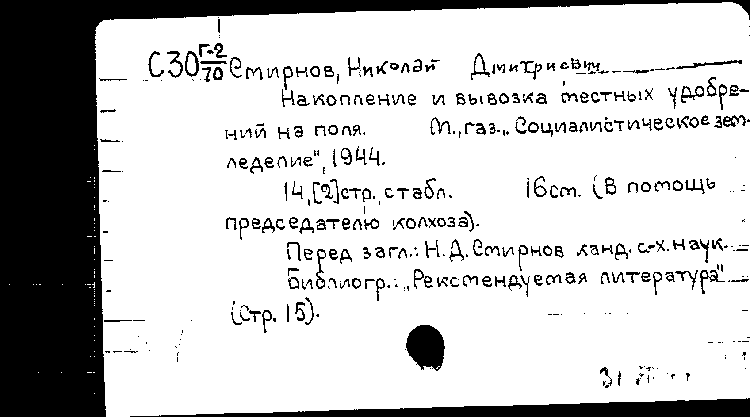 С30 Г-2/70 Смирнов, Николай Дмитриевич
Накопление и вывозка местных удобре-
ний на поля. М., газ. „Социалистическое зем-
леделие", 1944.
14,[2]стр., с табл. 16см. (В помощь
председателю колхоза).
Перед загл.: Н.Д. Смирнов канд. с-х. наук.
Библиогр.: „Рекомендуемая литература"
(Стр. 15).
31